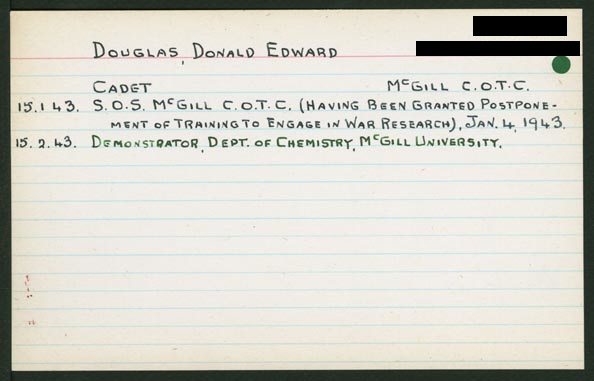 DOUGLAS, DONALD EDWARD
CADET McGILL C.O.T.C.
15.1.43. S.O.S. McGILL C.O.T.C. (HAVING BEEN GRANTED POSTPONE-
MENT OF TRAINING TO ENGAGE IN WAR RESEARCH), JAN. 4, 1943.
15.2.43. DEMONSTRATOR, DEPT. OF CHEMISTRY, McGILL UNIVERSITY.